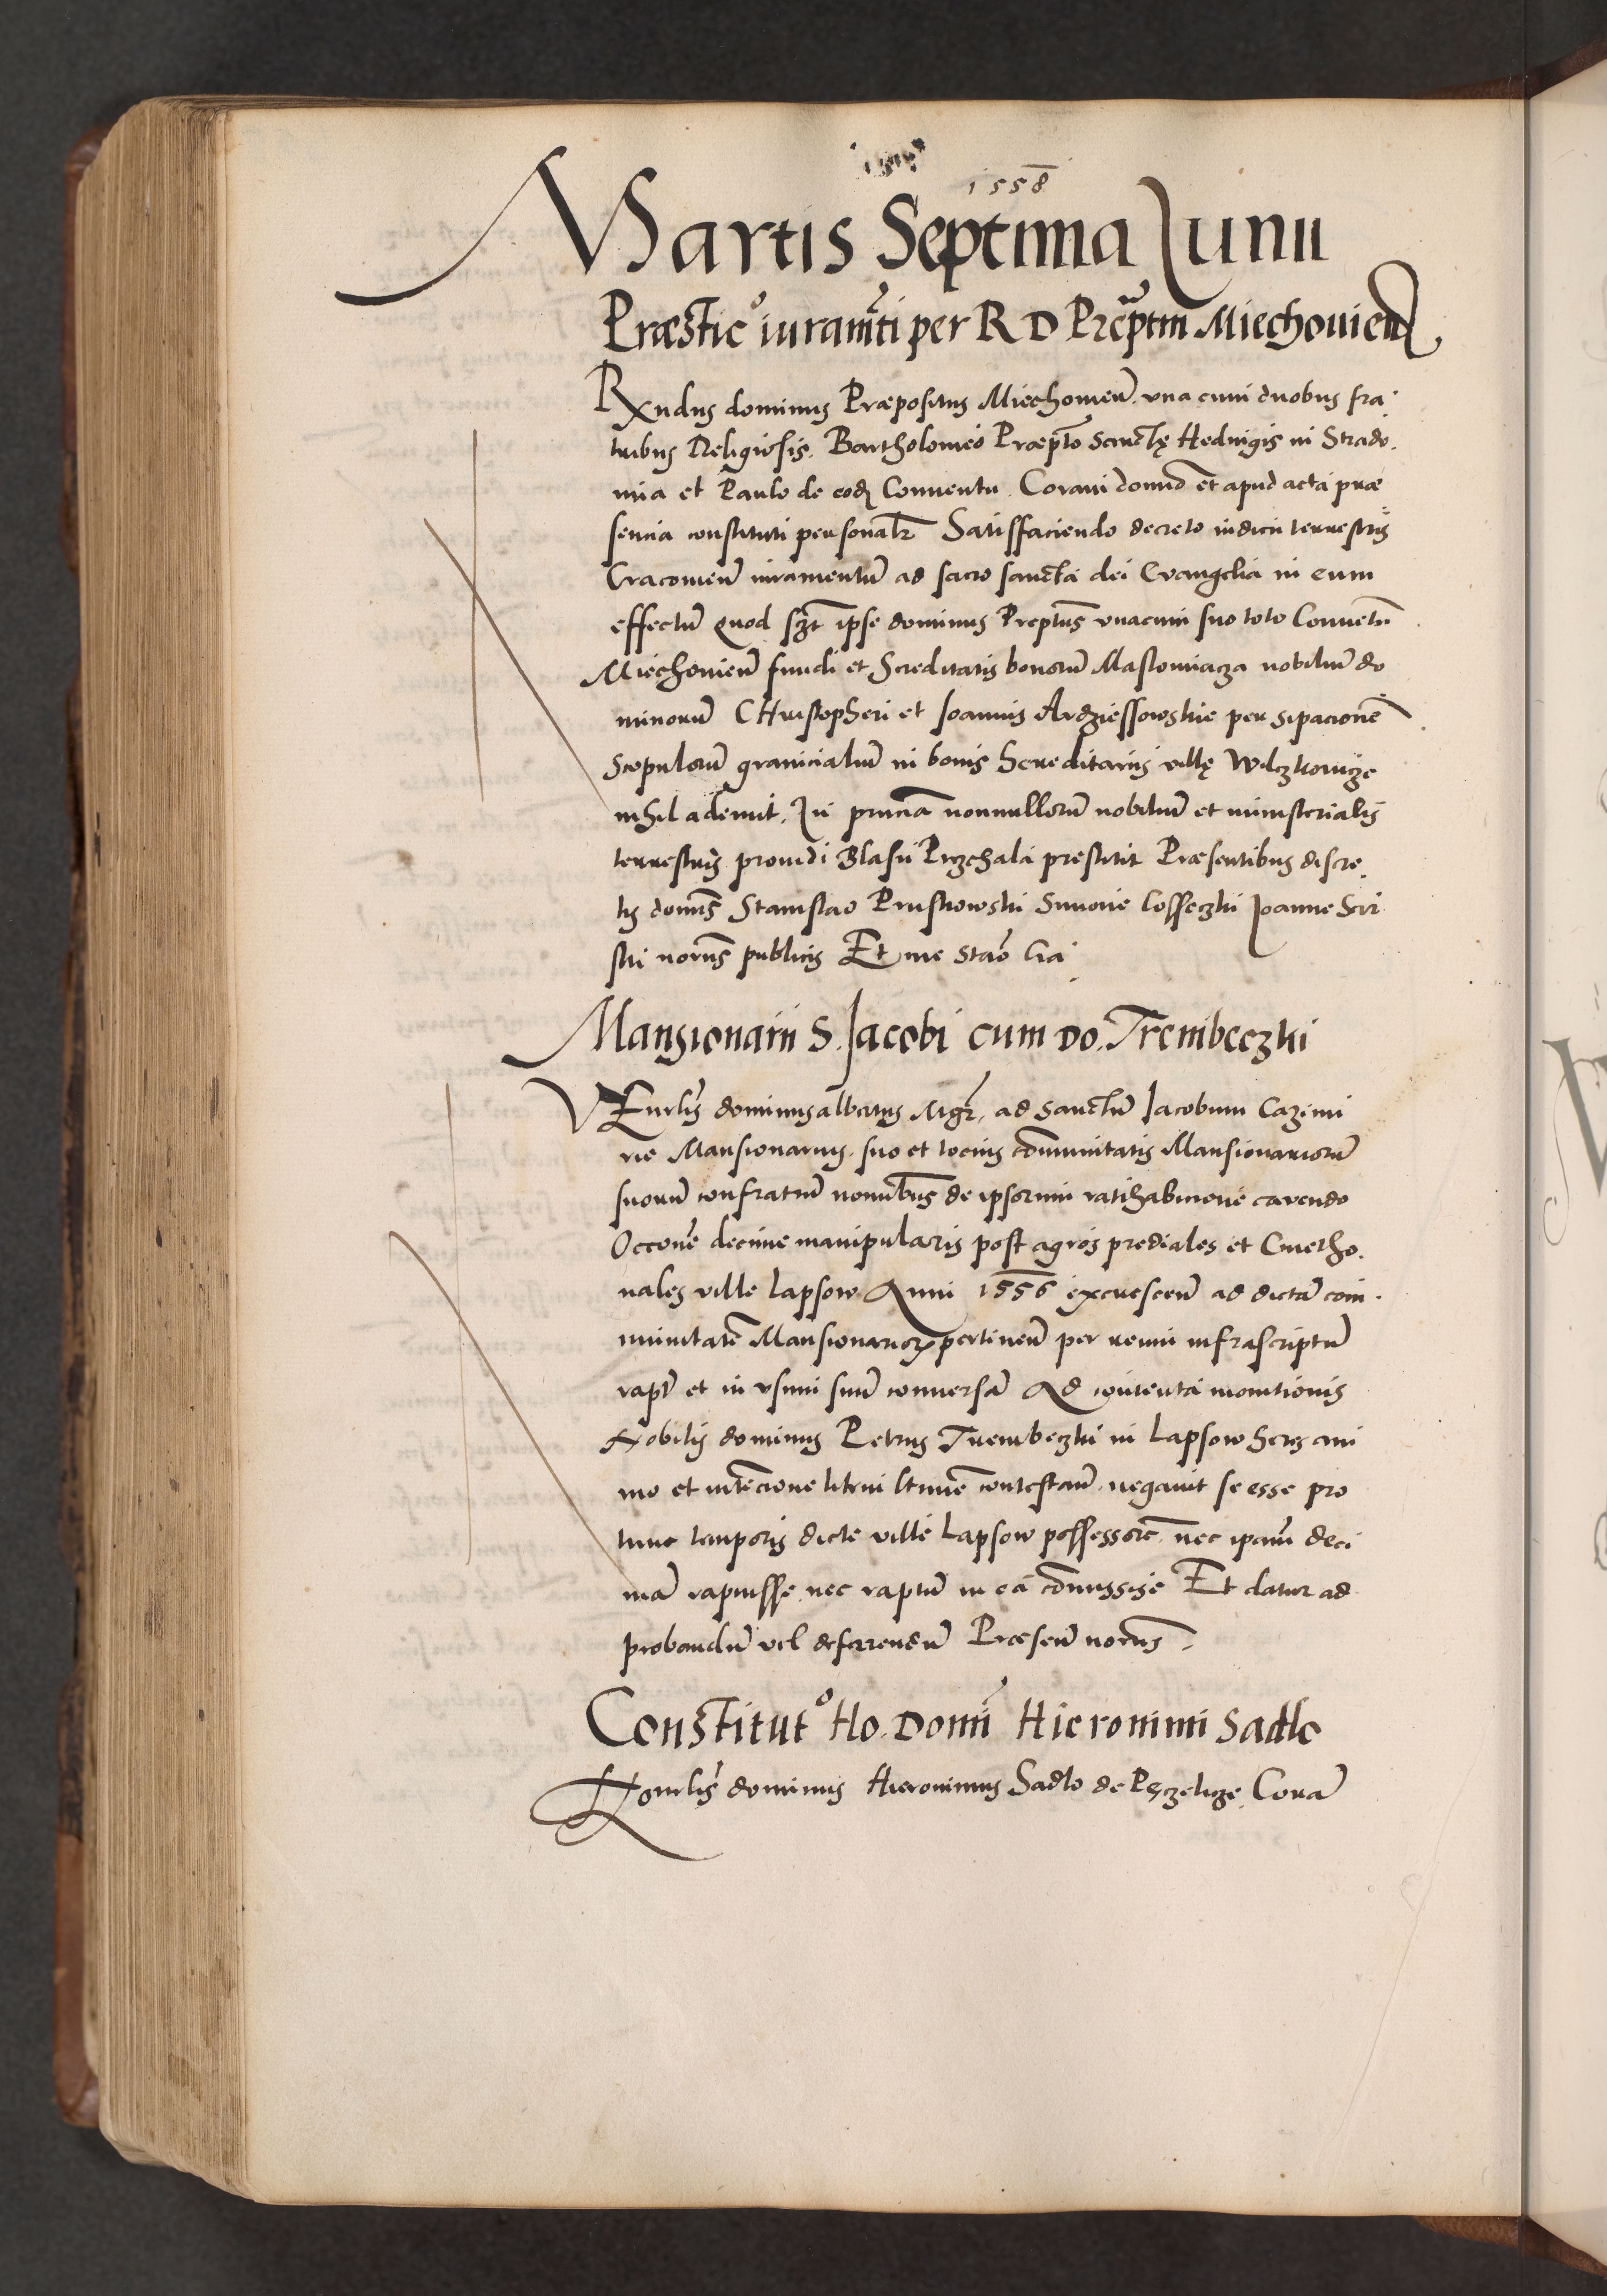 1558
Martis Septima Junii
Præstic° iuram̃ti per R D Prep̃tm Miechouien̄
Rxndus dominus Præpositus Miechouien̄. vna cum duobus fra
tribus Religiosis. Bartholomeo Præpto Sanctę Heduigis in Strado.
mia et Paulo de eod Conuentu. Coram domo et apud acta præ
sencia constituti personalr̄ Satisfaciendo decreto iudicii terrestris
Cracouien̄ iuramentū ad sacro sancta dei Evangelia in eum
effectū Quod szt̄ ipse dominus Prept̄us vnacum suo toto Conuetū
Miechouien̄ fundi et Hereditatis bonorū Maslomiacza nobiliū do
minorū CHristopheri et Joannis Ardziessowskie per sipacionē
Scopulorū granicialiū in bonis hereditariis villę Wilczkowicze
nihil ademit. In prñcia nonnullorū nobiliū et ministerialis
terrestris prouidi Blasii Przchala prestitit Præsentibus discre
tis dom̄s Stanislao Pruskowski Simone Cosseczki Joanne Scri
ski nor̄us publicis Et me Stāo Cra
Mansionarii S. Jacobi cum Do. Trembeczki
VEnrlis dominus albertus Mgr̄. ad Sanctū Jacobum Cazimi
rie Mansionarius. suo et tocius cōmunitatis Mansionariorū
suorū confratrū nomībus de ipsorum ratihabicione cavendo
Occonē decime manipularis post agros prediales et Cmetho.
nales ville Lapsow Anni 1556 excrescen̄ ad dictā com
munitatē Mansionarior pertinen̄ per reum infrascriptū
rapt̄ et in vsum suū conuersā Ad contenta monitionis
Nobilis dominus Petrus Trembeczki in Lapsow heres ani
mo et intēcione litem ltimē contestan̄. negauit se esse pro
tunc temporis dicte ville Lapsow possessorē. nec ipam deci
mā rapuisse. nec raptū in ea cōmississe Et datur ad
probandū vel deferendū Præsen̄ nor̄us.
Constitut° Ho. Domi Hieronimi Sadlo
Honrlis dominus Hieronimus Sadlo de Pęczelicze. Corā